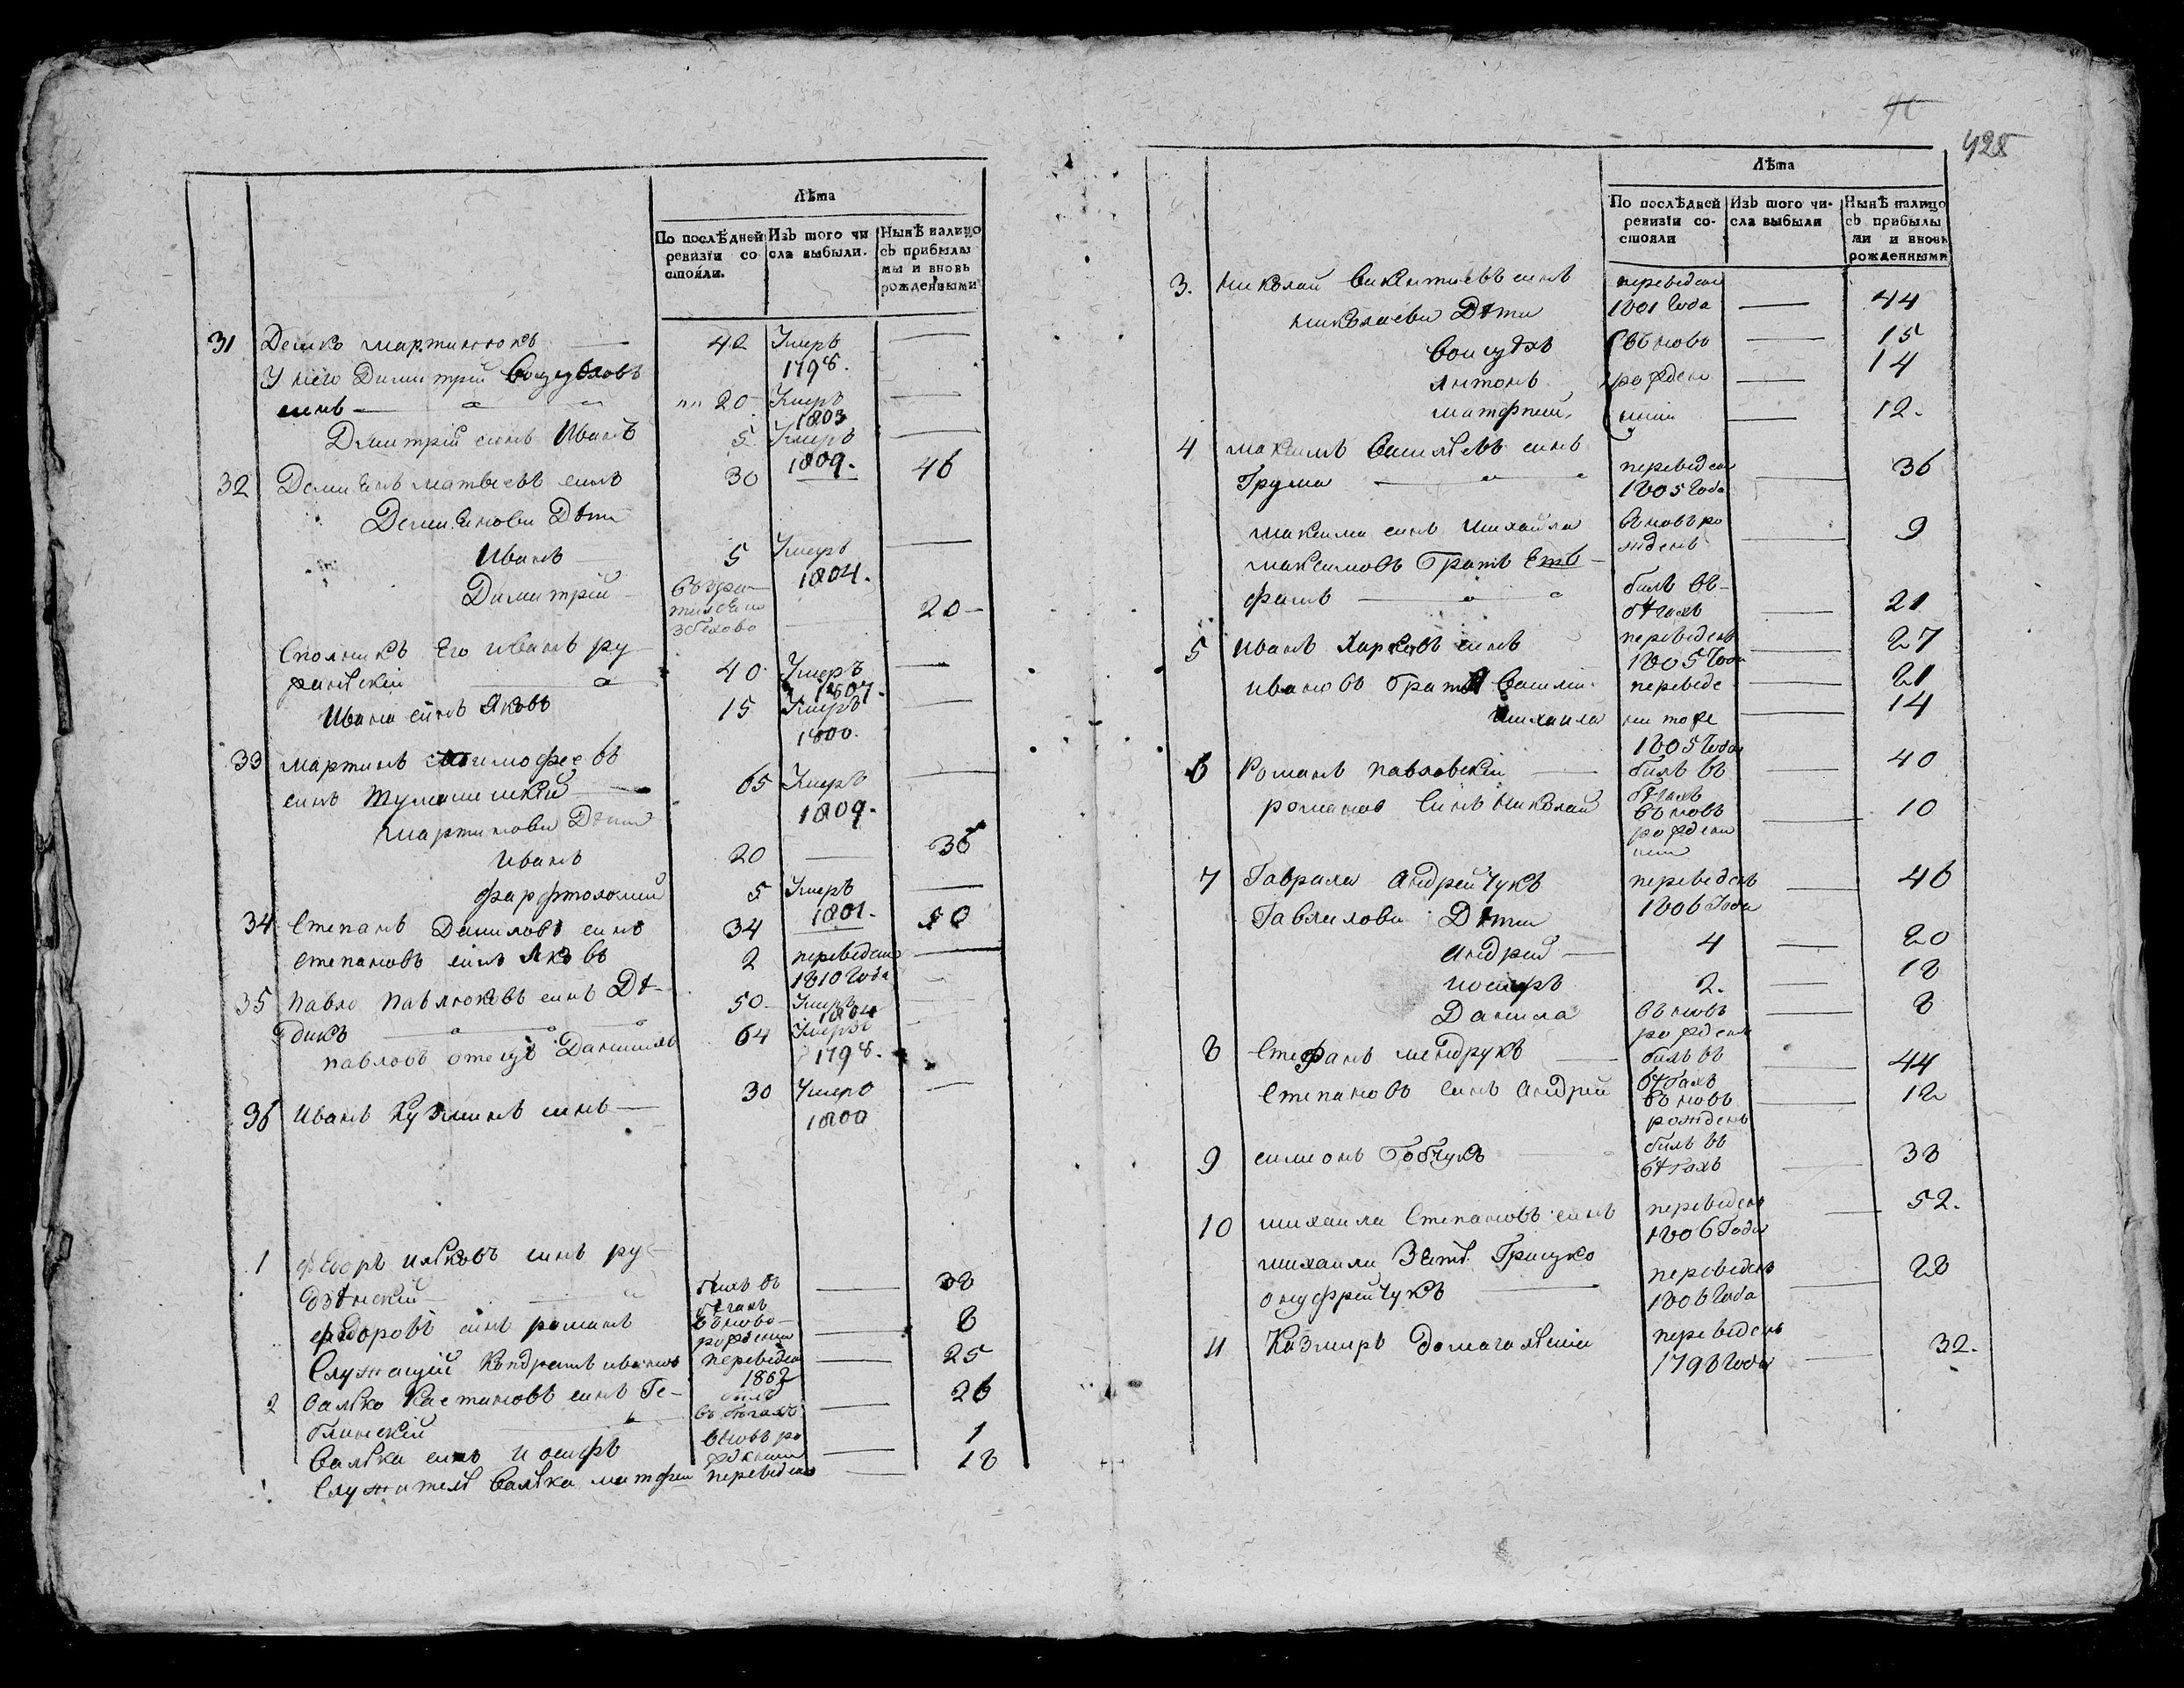 428
Лѣта
По послѣдней ревизіи со стояли.
Изъ того чи сла выбыли.
Нынѣ налицо съ прибылы мы и вновь рожденными
31 Демко мартинюкъ — 42 Умеръ 1798. —
У него Димитрій
синъ — 20 Умеръ 1803 —
Дмитрій синъ Иванъ 5 Умеръ 1809. —
32 Демиенъ матвеевъ синъ 30 — 46
Демиенови Дѣти
Иванъ 5 Умеръ 1804. —
Димитрій — 20
Его иванъ ру
40 Умеръ 1807. —
Ивана синъ Яковъ 15 Умеръ 1800. —
33 мартинъ тимофеевъ
синъ 65 Умеръ 1809. —
мартинови Дѣти
Иванъ 20 — 36
фарфтоломій 5 Умеръ 1801. —
34 Степанъ Даниловъ синъ 34 — 50
степановъ синъ Яковъ 2 переведенъ 1810 Года —
35 павло павлюковъ синъ Дѣ-
дикъ 50 Умеръ 1804
павловъ отецъ Данииль 64 Умеръ 1798. —
36 Иванъ Кузминъ синъ — 30 Умеръ 1800 —
1 федоръ ильковъ синъ ру-
билъ въ бѣгахъ — 38
федоровъ синъ романъ вновь рожденни — 8
Служащій Кондратъ переведен 1802 — 25
2 Валько синъ Ге-
блинскій билъ въ бѣгахъ — 26
Валька синъ иосифъ вновь рожденни — 1
Служитель Валька матфеи переведенъ — 18
Лѣта
По послѣдней ревизіи со-стояли
Изъ того чи-сла выбыли
Нынѣ налицо съ прибылы ми и вновь рожденными
3. николай викентиевъ синъ переведенъ 1801 Года — 44
николаеви Дѣти
Войцѣхъ вьновь — 15
Антонъ рожден — 14
матфий нии — 12.
4 максимъ Василевъ синъ
Грума переведенъ 1805 Года — 36
максима синъ михайла вьновь рожденъ — 9
максимовъ братъ Сте-
фанъ билъ въ бѣгахъ — 21
5 иванъ Карповъ синъ переведенъ 1805 Года — 27
ивановъ братья Василий переведе — 21
михаила ни тоже 1805 Года — 14
6 Романъ павловскій — билъ въ бѣгахъ — 40
романов Синъ николай вьновь рожденни — 10
7 Гаврила Андрейчукъ переведенъ 1806 Года — 46
Гаврилови Дѣти
Андрей — 4 — 20
иосифъ 2. — 18
Данила вьновь рожденъ — 8
8 Стефанъ мендрукъ — билъ въ бѣгахъ — 44
Степановъ Синъ Андрей вьновь рожденъ — 12
9 симионъ бобчукъ билъ въ бѣгахъ — 38
10 михаила Степановъ синъ переведенъ 1806 Года — 52.
михаили Зять Грицко
онуфрейчукъ — переведенъ 1806 Года — 28
11 Казмиръ переведенъ 1798 Года — 32.